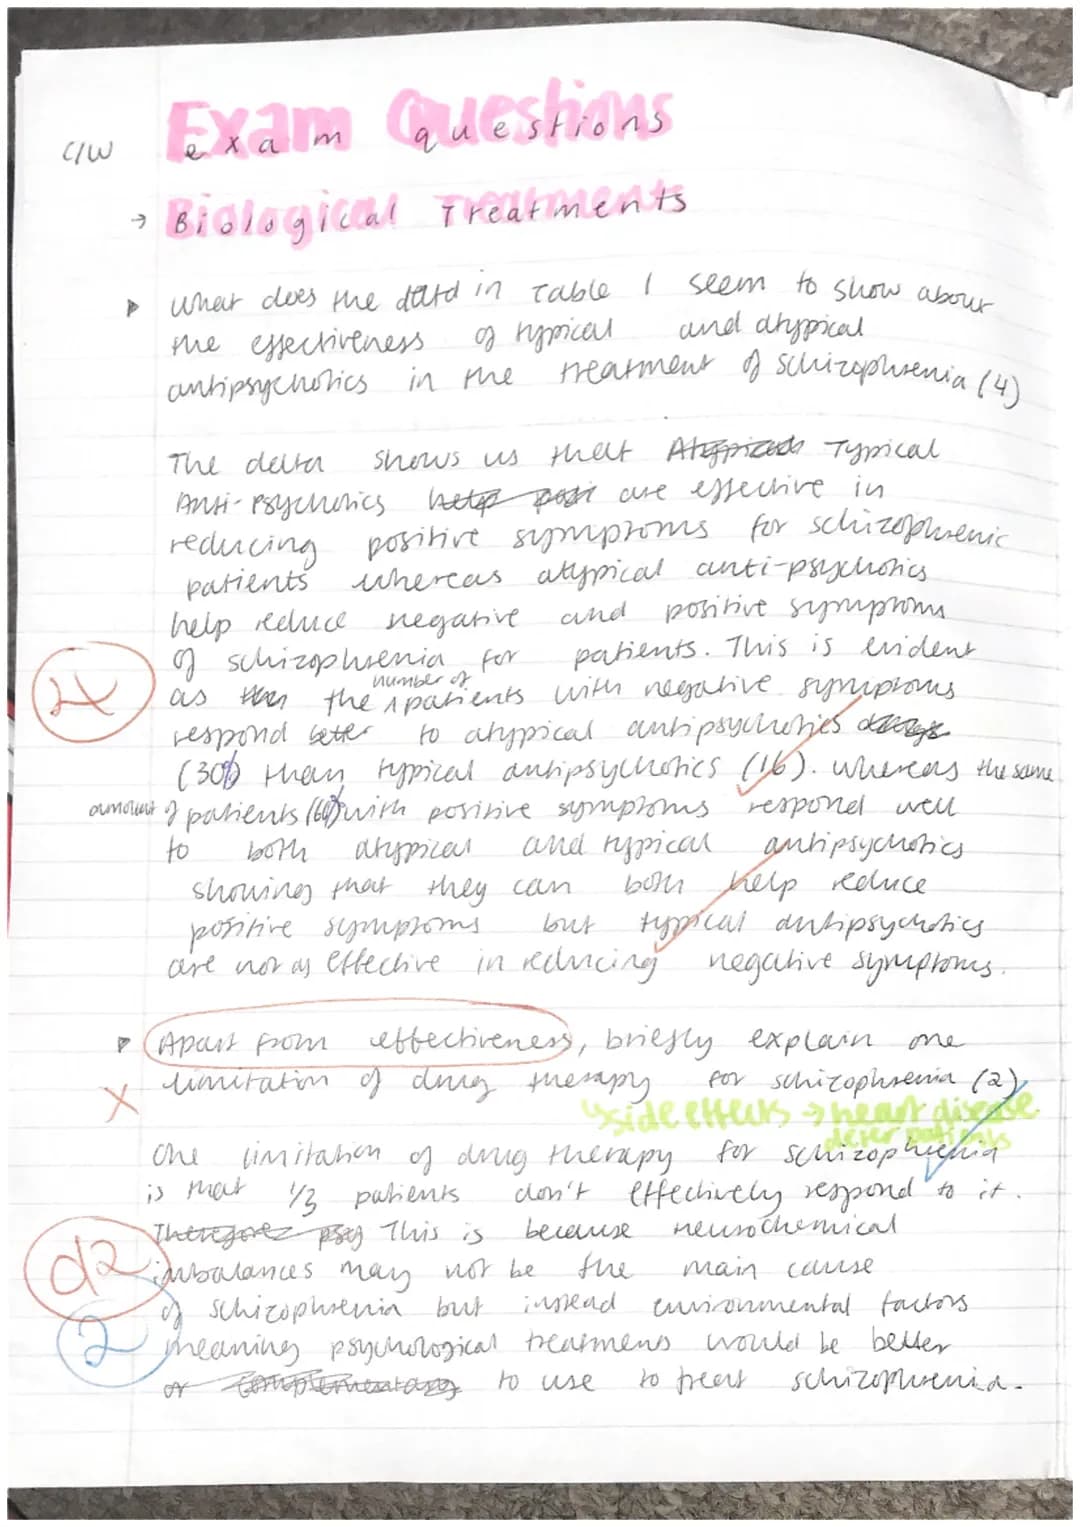 C/W Exam Questions
exam questions
→ Biological Treatments
▸ What does the data in Table 1 seem to show about
the effectiveness of typical and atypical
antipsychotics in the treatment of schizophrenia (4)
The data shows us that Typical
Anti-Psychotics are effective in
reducing positive symptoms for schizophrenic
patients whereas atypical anti-psychotics
help reduce negative and positive symptoms
of schizophrenia for patients. This is evident
as the number of patients with negative symptoms
respond better to atypical antipsychotics
(30%) than typical antipsychotics (16). Whereas the same
amount of patients with positive symptoms respond well
to both atypical and typical antipsychotics
showing that they can both help reduce
positive symptoms but typical antipsychotics
are not as effective in reducing negative symptoms.
▸ Apart from effectiveness, briefly explain one
X limitation of drug therapy for schizophrenia (2)
↳ side effects → heart disease
deter patients
One limitation of drug therapy for schizophrenia
is that 1/3 patients don't effectively respond to it.
Therefore This is because neurochemical
imbalances may not be the main cause
of schizophrenia but instead environmental factors
2 meaning psychological treatments would be better
or complementary to use to treat schizophrenia.